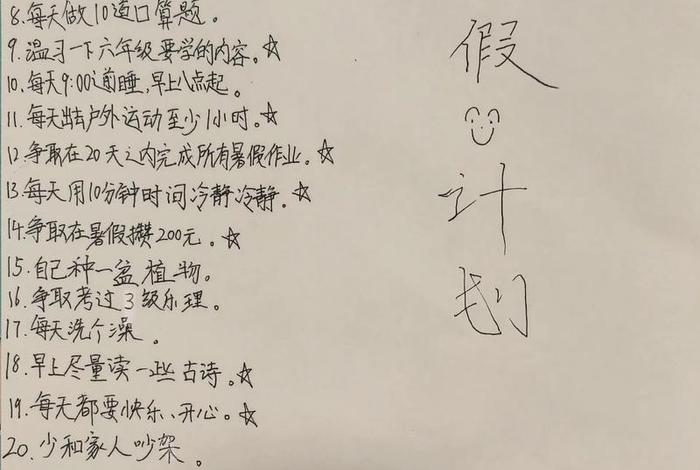 8.每天做10道口算题。
9.温习一下六年级要学的内容。☆
10.每天9:00前睡,早上八点起。
11.每天出去户外运动至少1小时。☆
12.争取在20天之内完成所有暑假作业。☆
13.每天用10分钟时间冷静冷静。☆
14.争取在暑假攒200元。☆
15.自己种一盆植物。
16.争取考过3级乐理。
17.每天洗个澡。
18.早上尽量读一些古诗。☆
19.每天都要快乐、开心。☆
20.少和家人吵架。
假
计
划